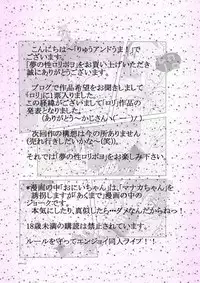 こんにちは～「りゅうアンドうま！」で
ございます。
「夢の性ロリポヨ」をお買い上げいただき
誠にありがとうございます。
ブログで作品希望をお聞きしまして
「ロリ」に1票入りました。
この経緯がございまして「ロリ」作品の
発表となりました。
(ありがとう～かじさんヽ(´ー｀)ノ)
次回作の構想は今の所ありません
(売れ行きしだいかな～(笑))。
それでは「夢の性ロリポヨ」をお楽しみ下さい。
*漫画の中「おにいちゃん」は、「マナカちゃん」を
誘拐しますが「あくまで」漫画の中の
ジョークです。
本気にしたり、真似したら～ダメなんだからねっ!
18歳未満の購読は禁止されています。
ルールを守ってエンジョイ同人ライフ!!